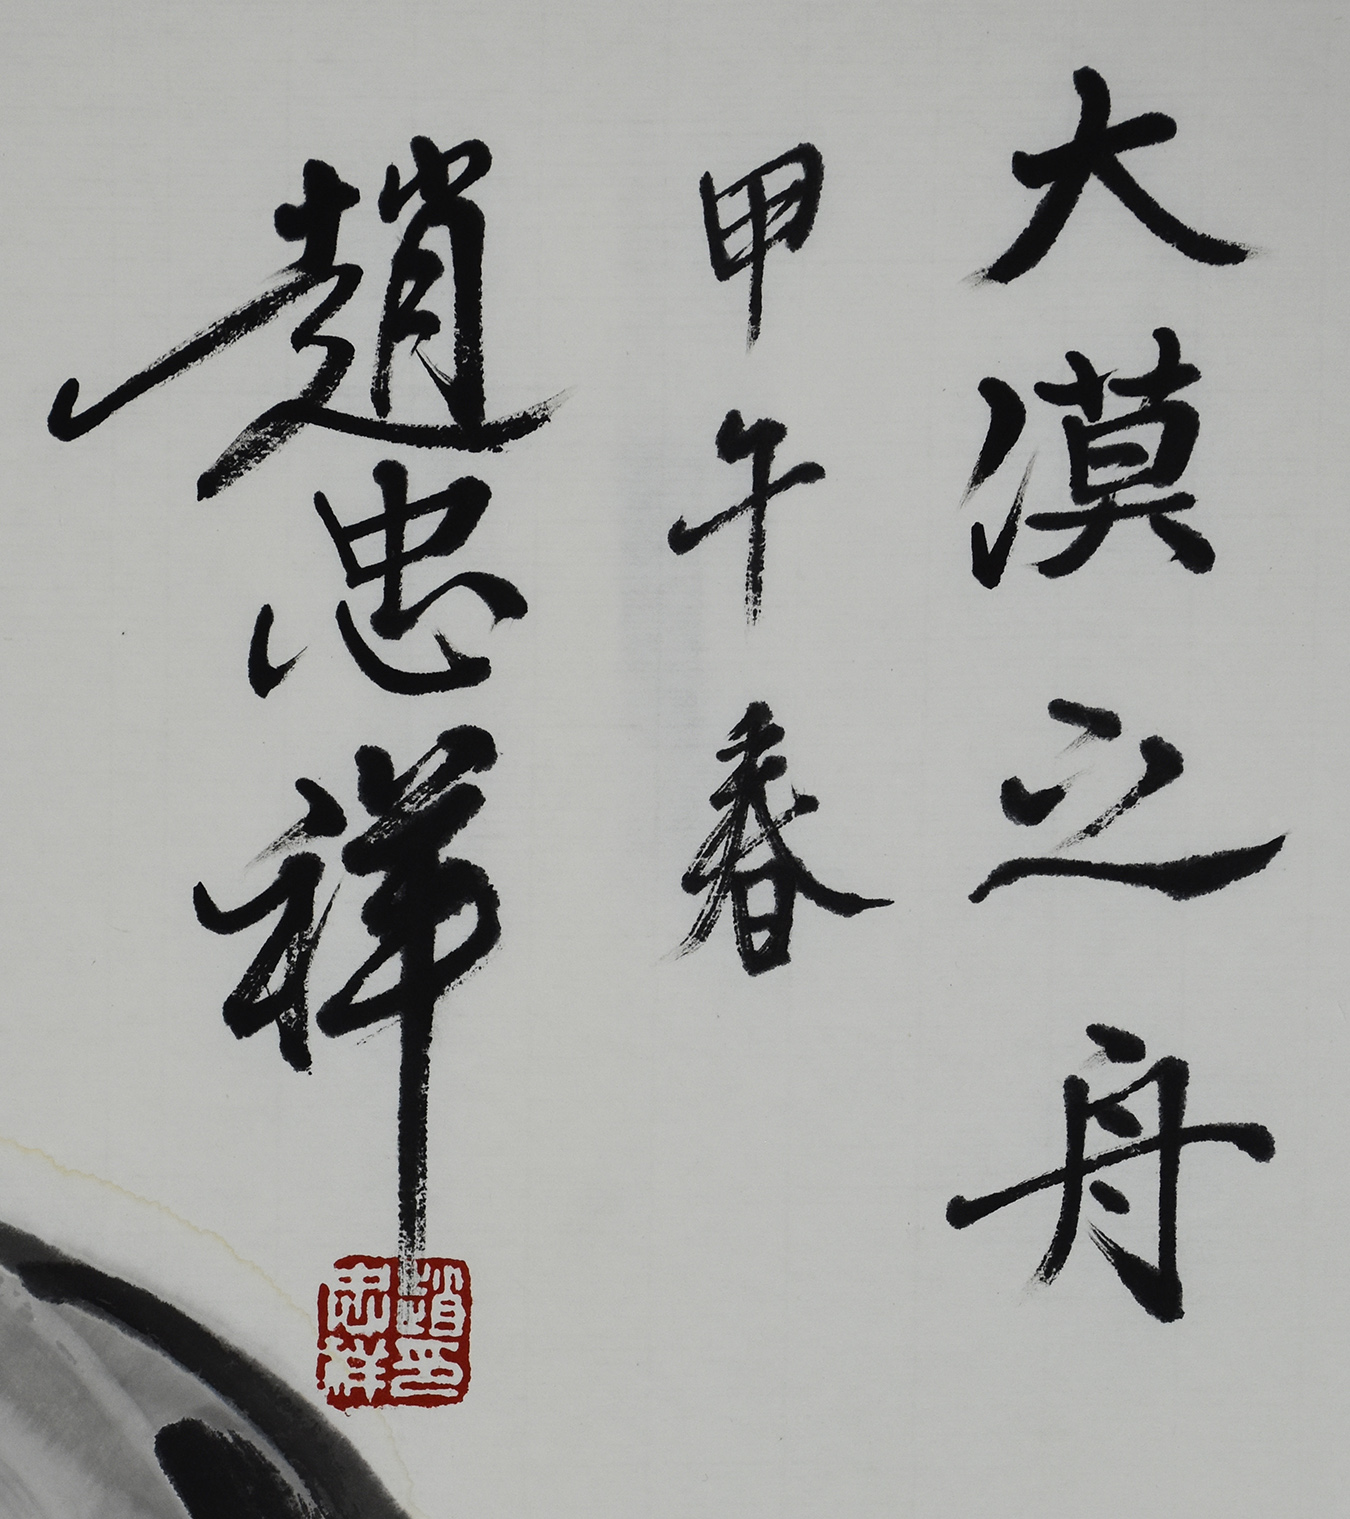 大漠之舟
甲午春
趙忠祥
趙印忠祥